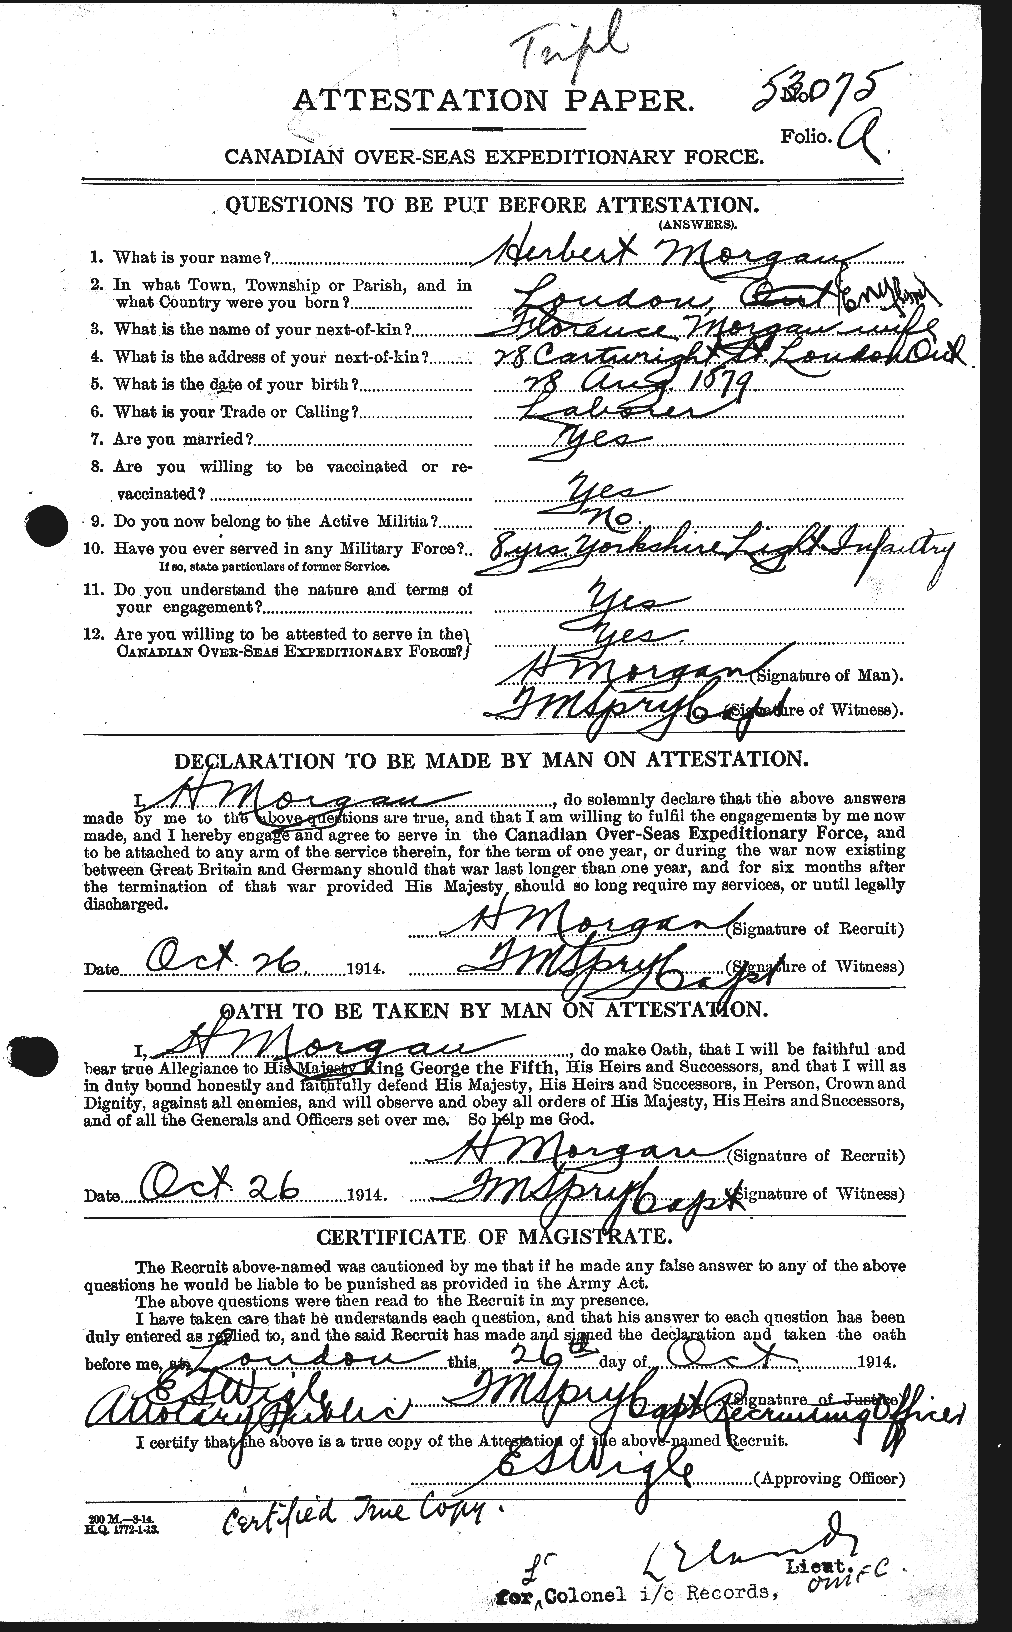 Tripl
ATTESTATION PAPER.
No. 53075
Folio. A
CANADIAN OVER-SEAS EXPEDITIONARY FORCE.
QUESTIONS TO BE PUT BEFORE ATTESTATION.
(ANSWERS).
1. What is your name? Herbert Morgan
2. In what Town, Township or Parish, and in
what Country were you born? London, Ont England
3. What is the name of your next-of-kin? Florence Morgan wife
4. What is the address of your next-of-kin? 28 Cartwright St. London Ont
5. What is the date of your birth? 28 Aug 1879
6. What is your Trade or Calling? Laborer
7. Are you married? Yes
8. Are you willing to be vaccinated or re-
vaccinated? Yes
9. Do you now belong to the Active Militia? No.
10. Have you ever served in any Military Force? 8 yrs. Yorkshire Light Infantry
If so, state particulars of former Service.
11. Do you understand the nature and terms of
your engagement? Yes
12. Are you willing to be attested to serve in the
CANADIAN OVER-SEAS EXPEDITIONARY FORCE? Yes.
H Morgan (Signature of Man).
F M Spry Capt (Signature of Witness).
DECLARATION TO BE MADE BY MAN ON ATTESTATION.
I, H Morgan, do solemnly declare that the above answers
made by me to the above questions are true, and that I am willing to fulfil the engagements by me now
made, and I hereby engage and agree to serve in the Canadian Over-Seas Expeditionary Force, and
to be attached to any arm of the service therein, for the term of one year, or during the war now existing
between Great Britain and Germany should that war last longer than one year, and for six months after
the termination of that war provided His Majesty should so long require my services, or until legally
discharged.
H Morgan (Signature of Recruit)
Date Oct. 26, 1914. F M Spry Capt (Signature of Witness)
OATH TO BE TAKEN BY MAN ON ATTESTATION.
I, H Morgan, do make Oath, that I will be faithful and
bear true Allegiance to His Majesty King George the Fifth, His Heirs and Successors, and that I will as
in duty bound honestly and faithfully defend His Majesty, His Heirs and Successors, in Person, Crown and
Dignity, against all enemies, and will observe and obey all orders of His Majesty, His Heirs and Successors,
and of all the Generals and Officers set over me. So help me God.
H Morgan (Signature of Recruit)
Date Oct. 26 1914. F M Spry Capt (Signature of Witness)
CERTIFICATE OF MAGISTRATE.
The Recruit above-named was cautioned by me that if he made any false answer to any of the above
questions he would be liable to be punished as provided in the Army Act.
The above questions were then read to the Recruit in my presence.
I have taken care that he understands each question, and that his answer to each question has been
duly entered as replied to, and the said Recruit has made and signed the declaration and taken the oath
before me, at London this 26th day of Oct 1914.
E S Wigle F M Spry Capt (Signature of Justice)
A Notary Public Recruiting Officer
I certify that the above is a true copy of the Attestation of the above-named Recruit.
E S Wigle (Approving Officer)
200 M.—8-14.
H.Q. 1772-1-13.
Certified True Copy.
Lieut.
for Colonel i/c Records,